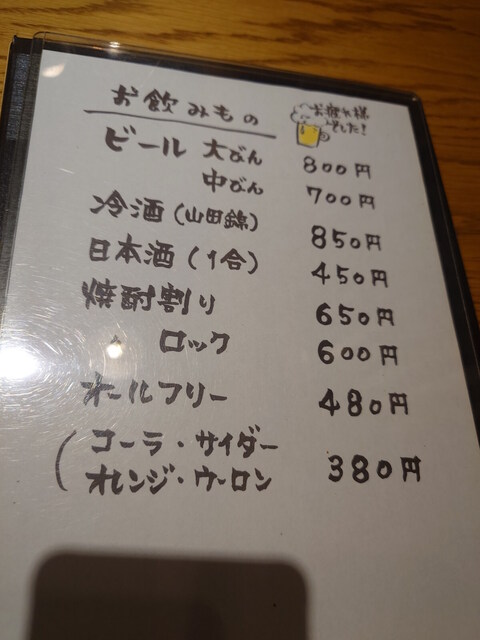 お飲みもの
お疲れ様
でした!
ビール 大びん 800円
中びん 700円
冷酒(山田錦) 850円
日本酒(1合) 450円
焼酎割り 650円
〃 ロック 600円
オールフリー 480円
コーラ・サイダー
オレンジ・ウーロン 380円